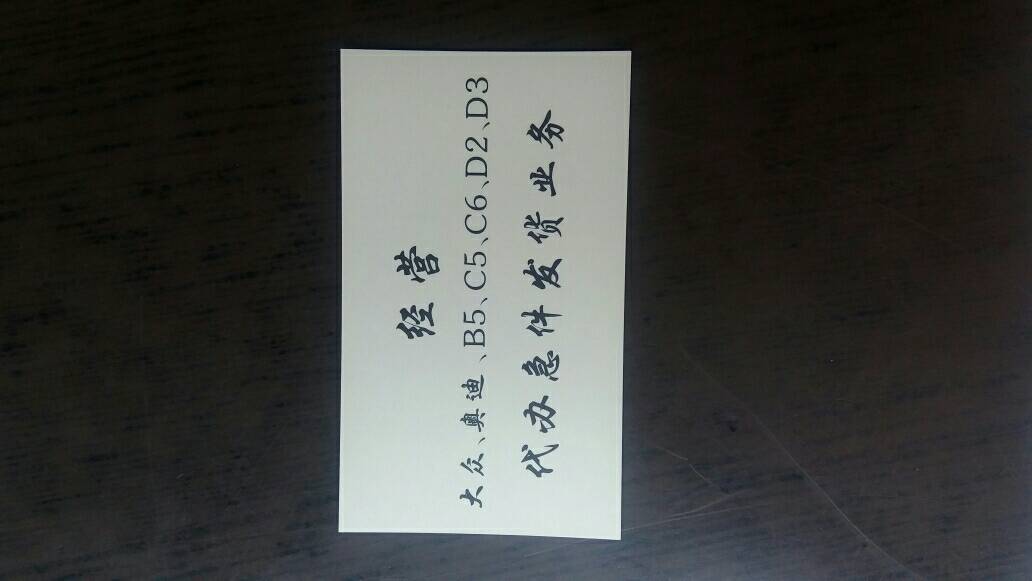 经营
大众、奥迪、B5、C5、C6、D2、D3
代办急件发货业务